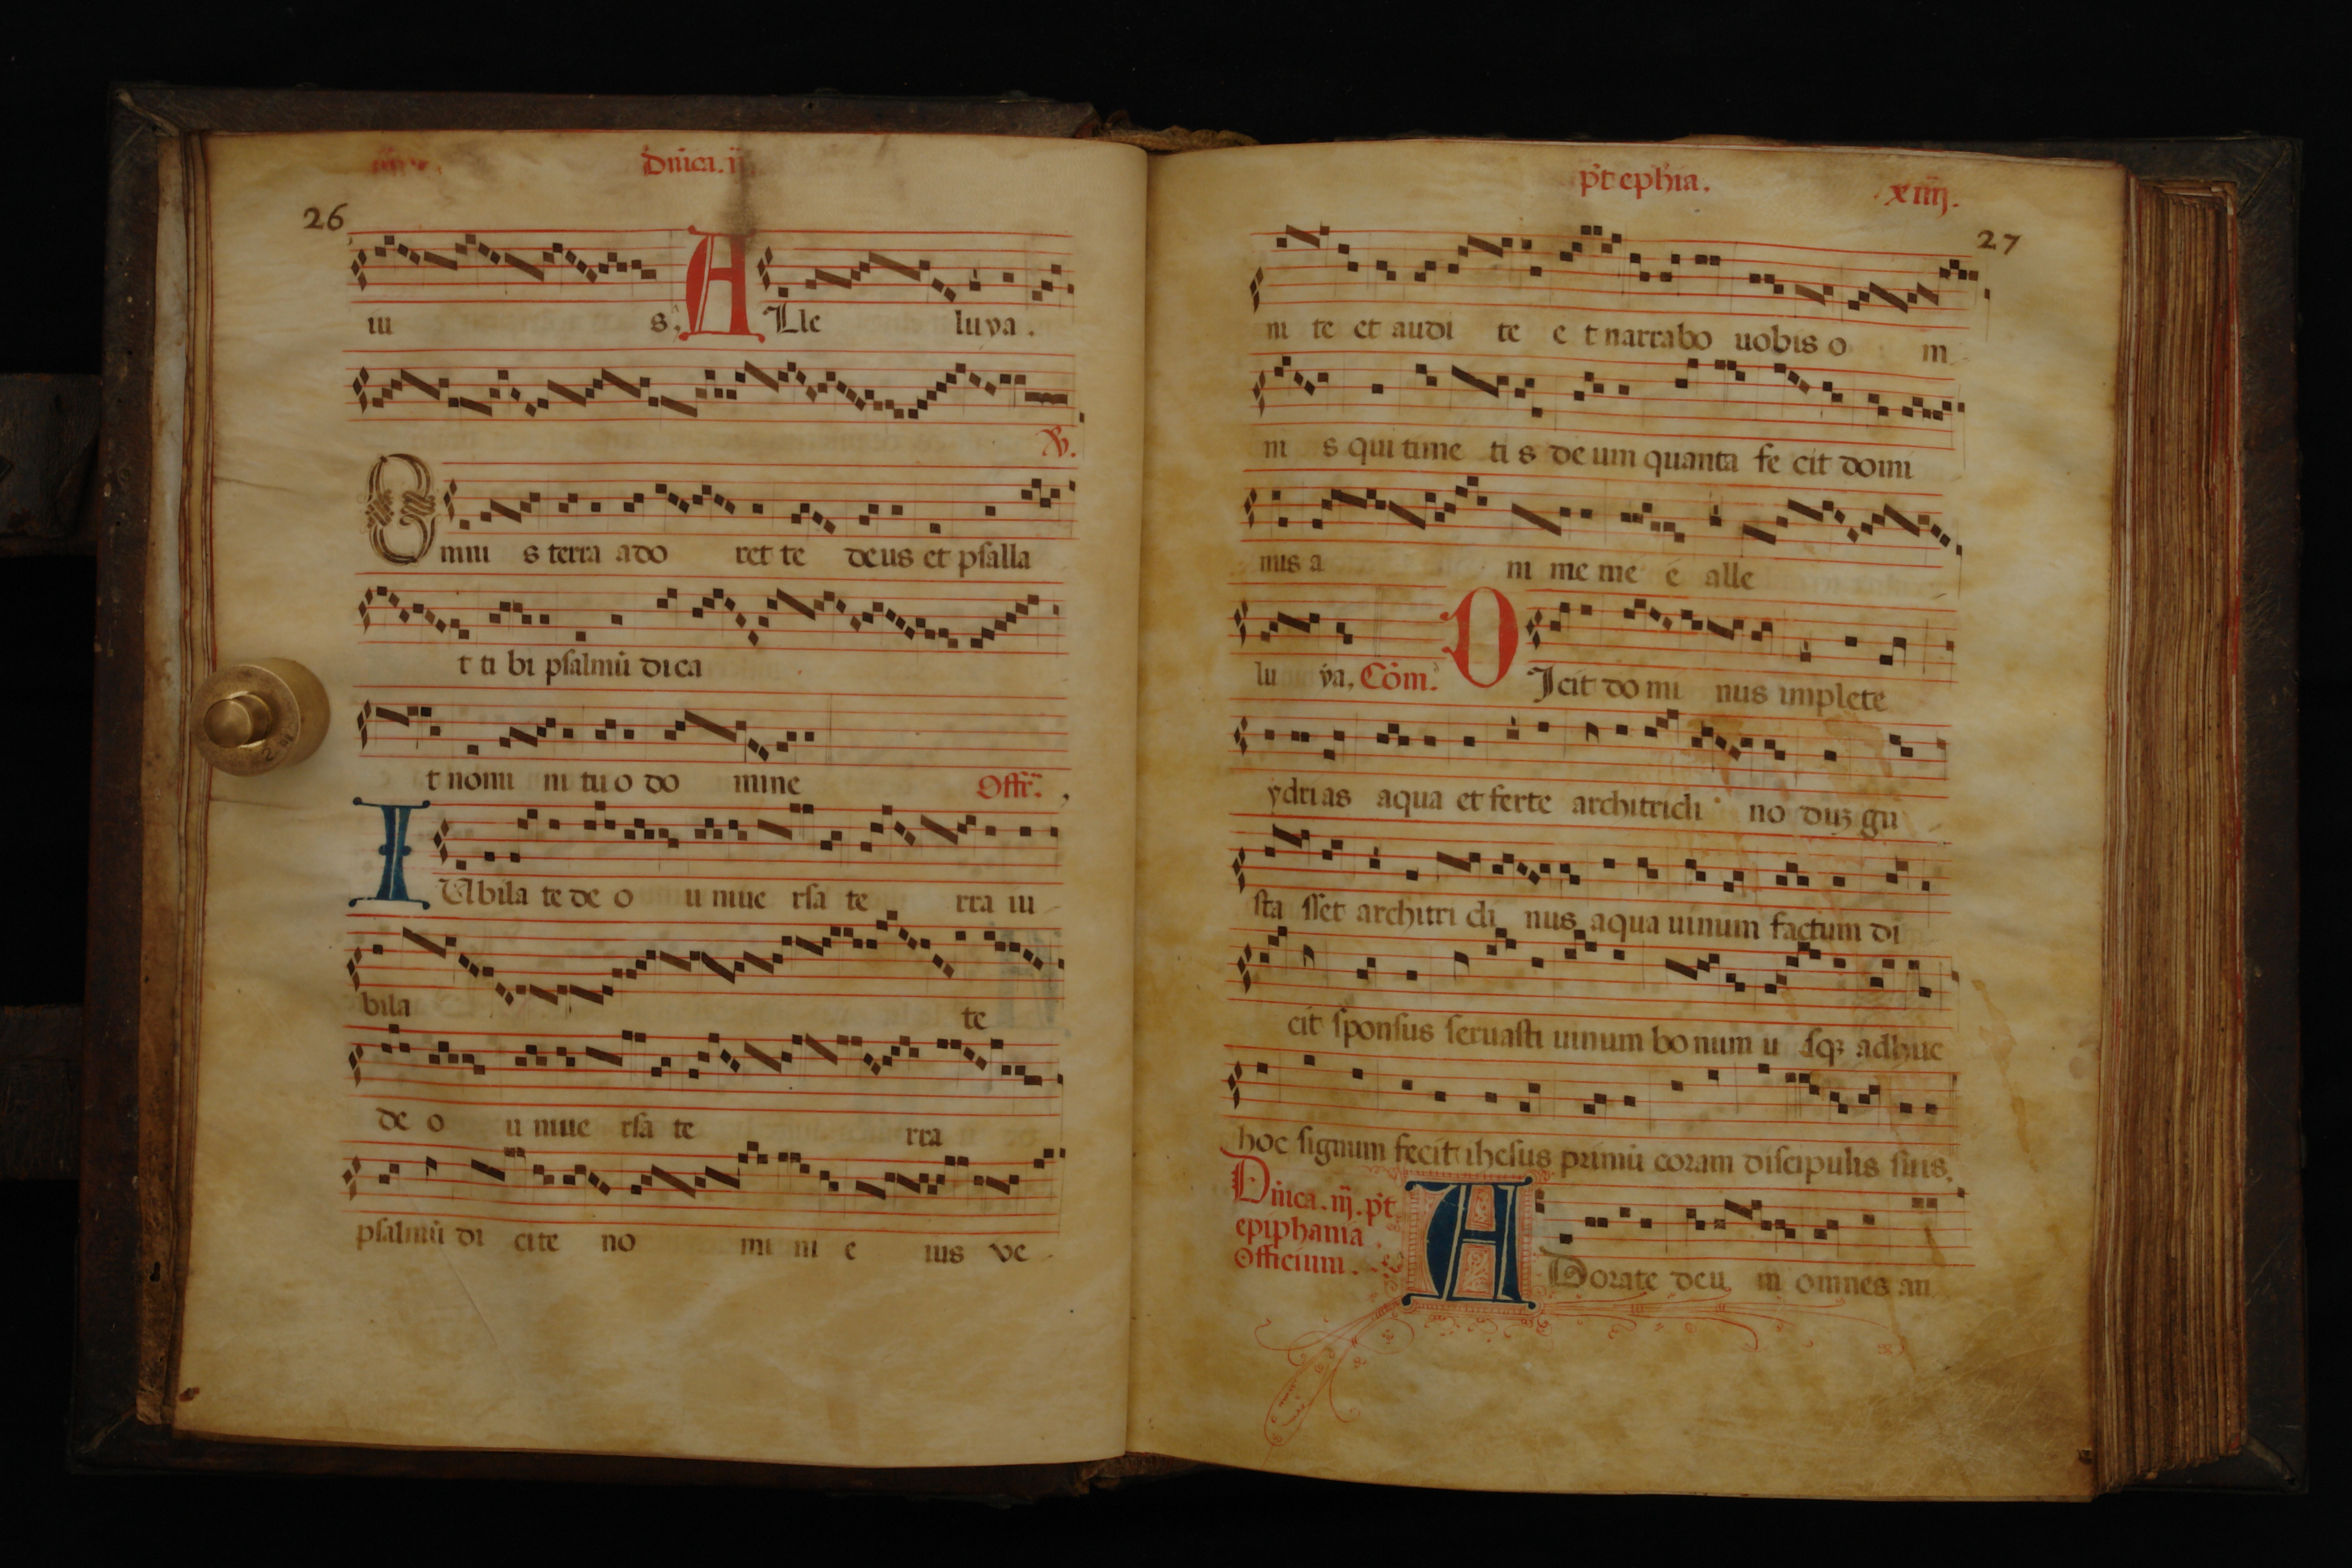 Dn̄ica. ii
26
iu s. ALle luya.
℣.
Omni s terra ado ret te deus et psalla
t ti bi psalmū dica
t nomi ni tu o do mine Offr̄.
IUbila te de o u niue rsa te rra iu
bila te
de o u niue rsa te rra
psalmū di cite no mi ni e ius ve
p̄t ephīa. xiiij.
27
ni te et audi te e t narrabo uobis o m
ni s qui time ti s de um quanta fe cit domi
nus a ni me me e alle
lu ya, Cōm. DIcit do mi nus implete
ydrias aqua et ferte architricli no duȝ gu
sta sset architri cli nus aqua uinum factum di
cit sponsus seruasti uinum bo num u sqȝ adhuc
hoc signum fecit ihesus primū coram discipulis suis.
Dn̄ica. iij. p̄t
epiphania.
Officium.
ADorate deu m omnes an